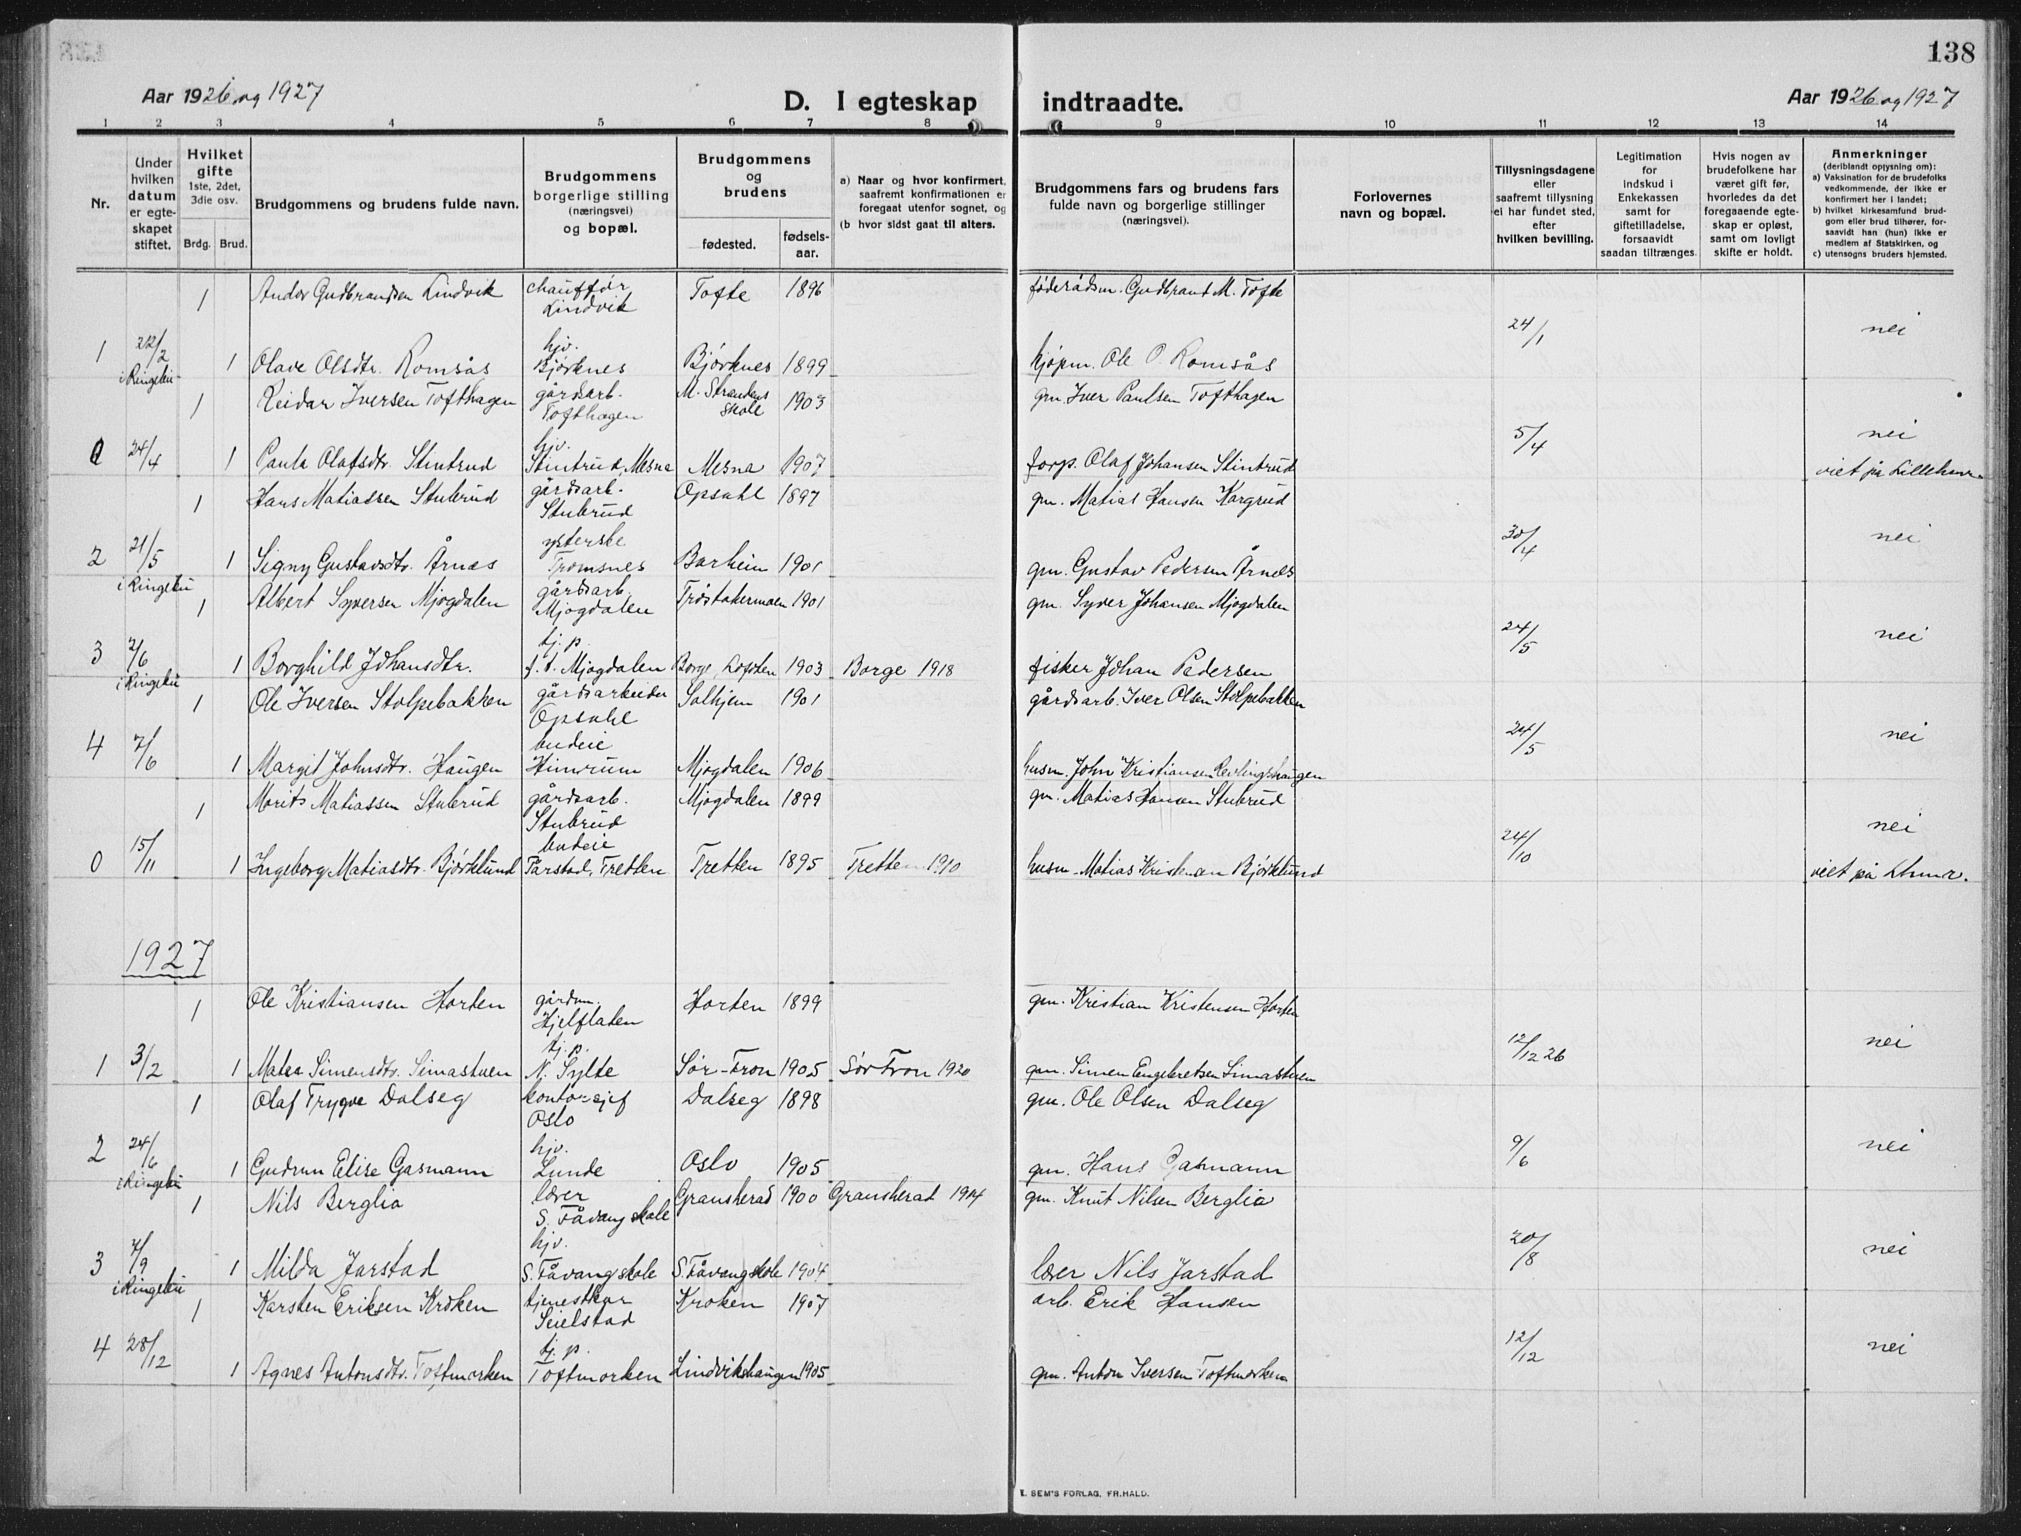 138
Aar 1926 og 1927
D. I egteskap indtraadte.
Aar 1926 og 1927
1 2 3 4 5 6 7 8 9 10 11 12 13 14
Nr.
Under hvilken datum er egte-skapet stiftet.
Hvilket gifte 1ste, 2det, 3die osv.
Brdg. Brud.
Brudgommens og brudens fulde navn.
Brudgommens borgerlige stilling (næringsvei) og bopæl.
Brudgommens og brudens
fødested. fødsels-aar.
a) Naar og hvor konfirmert, saafremt konfirmationen er foregaat utenfor sognet, og
(b hvor sidst gaat til alters.
Brudgommens fars og brudens fars fulde navn og borgerlige stillinger (næringsvei).
Forlovernes navn og bopæl.
Tillysningsdagene eller saafremt tillysning ei har fundet sted, efter hvilken bevilling.
Legitimation for indskud i Enkekassen samt for giftetilladelse, forsaavidt saadan tiltrænges.
Hvis nogen av brudefolkene har været gift før, hvorledes da det foregaaende egte-skap er opløst, samt om lovligt skifte er holdt.
Anmerkninger (deriblandt opysning om):
a) Vaksination for de brudefolks vedkommende, der ikke er konfirmert her i landet;
b) hvilket kirkesamfund brud-gom eller brud tilhører, for-saavidt han (hun) ikke er medlem af Statskirken, og
c) utensogns bruders hjemsted.
1 Ander Gudbrandsen Lindvik chauffør Lindvik Tofte 1896 føderådsm. Gudbrand M. Tofte
1 22/2 i Ringebu 1 Olave Olsdtr. Romsås hjv. Bjørknes Bjørknes 1899 kjøpm. Ole O. Romsås 24/1 nei
1 Reidar Iversen Tofthagen gårdsarb. Tofthagen M. Strandens skole 1903 gm. Iver Paulsen Tofthagen
0 24/4 1 Paula Olafsdtr. Stintrud hjv. Stintrud, Mesna Mesna 1907 forp. Olaf Johansen Stintrud 5/4 nei viet på Lilleham.
1 Hans Matiassen Stubrud gårdsarb. Stubrud Opsahl 1897 gm. Matias Hansen Kargrud
2 21/5 i Ringebu 1 Signy Gustavsdtr. Årnæs ysterske Tromsnes Barheim 1901 gm. Gustav Pedersen Årnæs 30/4 nei
1 Albert Syversen Mjogdalen gårdsarb. Mjogdalen Trøstakermoen 1901 gm. Syver Johansen Mjogdalen
3 2/6 i Ringebu 1 Borghild Johansdtr. tj. p. f. t. Mjogdalen Borge, Lofoten 1903 Borge 1918 fisker Johan Pedersen 24/5 nei
1 Ole Iversen Stolpebakken gårdsarbeider Opsahl Solhjem 1901 gårdsarb. Iver Olsen Stolpebakken
4 7/6 1 Margit Johnsdtr. Haugen budeie Himrum Mjogdalen 1906 husm. John Kristiansen Revlingshaugen 24/5 nei
1 Morits Matiassen Stubrud gårdsarb. Stubrud Mjogdalen 1899 gm. Matias Hansen Stubrud
0 15/11 1 Ingeborg Matiasdtr. Bjørklund budeie Parstad, Tretten Tretten 1895 Tretten 1910 husm. Matias Kristensen Bjørklund 24/10 nei viet på Lhmr.
1927
1 Ole Kristiansen Horten gårdm. Hjelflaten Horten 1899 gm. Kristian Kristensen Horten
1 3/2 1 Matea Simensdtr. Simastuen tj. p. N. Sylte Sør-Fron 1905 Sør Fron 1920 gm. Simen Engebretsen Simastuen 12/12 26 nei
1 Olaf Trygve Dalseg kontorsjef Oslo Dalseg 1898 gm. Ole Olsen Dalseg
2 24/6 i Ringebu 1 Gudrun Elise Gasmann hjv. Lunde Oslo 1905 gm. Hans Gasmann 9/6 nei
1 Nils Berglia lærer S. Fåvang skole Gransherad 1900 Gransherad 1914 gm. Knut Nilsen Berglia
3 7/9 i Ringebu 1 Milda Jarstad hjv. S. Fåvang skole S. Fåvang skole 1904 lærer Nils Jarstad 20/8 nei
1 Karsten Eriksen Kroken tjenestkar Seielstad Kroken 1907 arb. Erik Hansen
4 28/12 1 Agnes Antonsdtr. Toftmorken tj. p. Toftmorken Lindvikshaugen 1905 gm. Anton Iversen Toftmorken 12/12 nei
E. SEM'S FORLAG, FR.HALD.